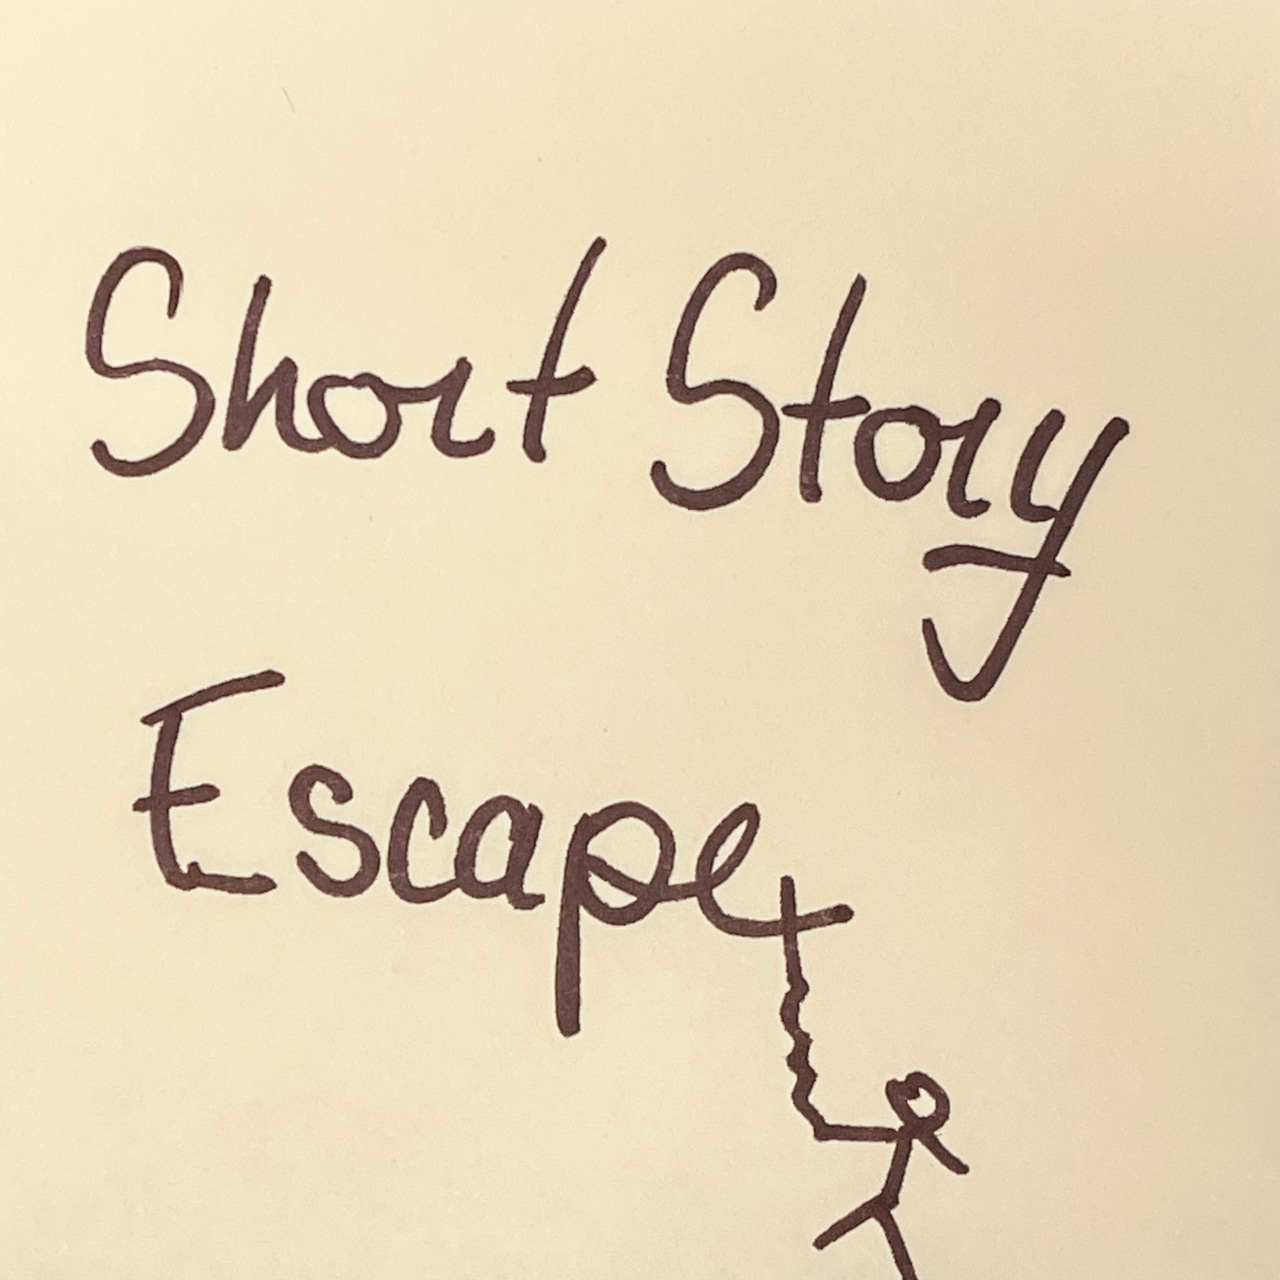 Short Story
Escape